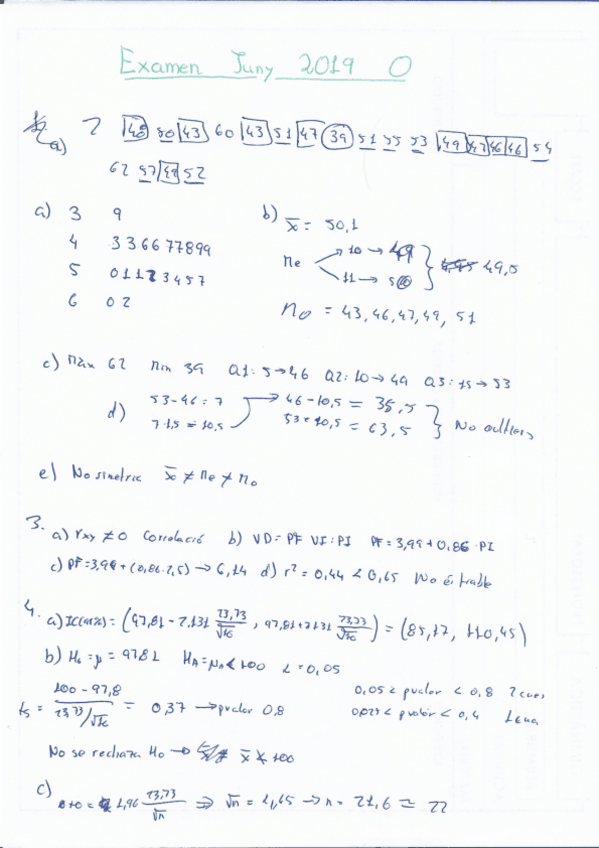 Examen Juny 2019 O
a) 2 48 50 43 60 43 51 47 39 51 55 53 49 47 46 46 54
62 57 49 52
a) 3 9
4 33667789 9
5 0112 3457
6 02
b) x̄ = 50,1
Me 10 → 49
11 → 50 } 49,5
Mo = 43, 46, 47, 49, 51
c) Max 62 Min 39 Q1: 5→46 Q2: 10→49 Q3: 15→53
d) 53-46 = 7 → 46-10,5 = 35,5
7·1,5 = 10,5 53+10,5 = 63,5 } No outliers
e) No simetric x̄ ≠ Me ≠ Mo
3. a) rxy ≠ 0 Correlació b) VD = PF VI: PI PF = 3,99 + 0,86 · PI
c) PF = 3,99 + (0,86·2,5) → 6,14 d) r² = 0,44 < 0,65 No és fiable
4. a) IC(95%) = (97,81 - 2,131 23,73/√16 , 97,81 + 2,131 23,73/√16) = (85,17, 110,45)
b) Ho = μ = 97,81 HA = μA < 100 α = 0,05
ts = 100 - 97,8 / 23,73/√16 = 0,37 → pvalor 0,8
0,05 < pvalor < 0,8 2 cues
0,025 < pvalor < 0,4 1 cua
No se rechaza Ho → x̄ 100
c)
= 1,96 23,73/√n ⇒ √n = 4,65 → n = 21,6 = 22